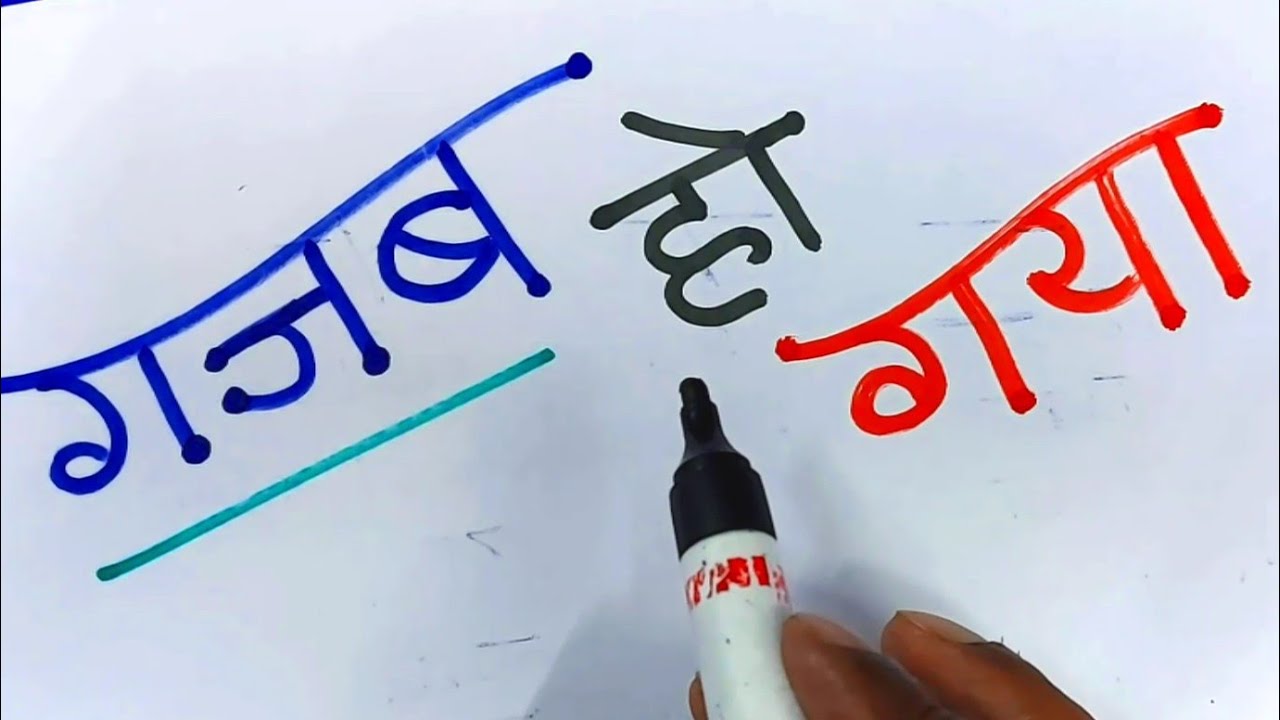 गजब हो गया